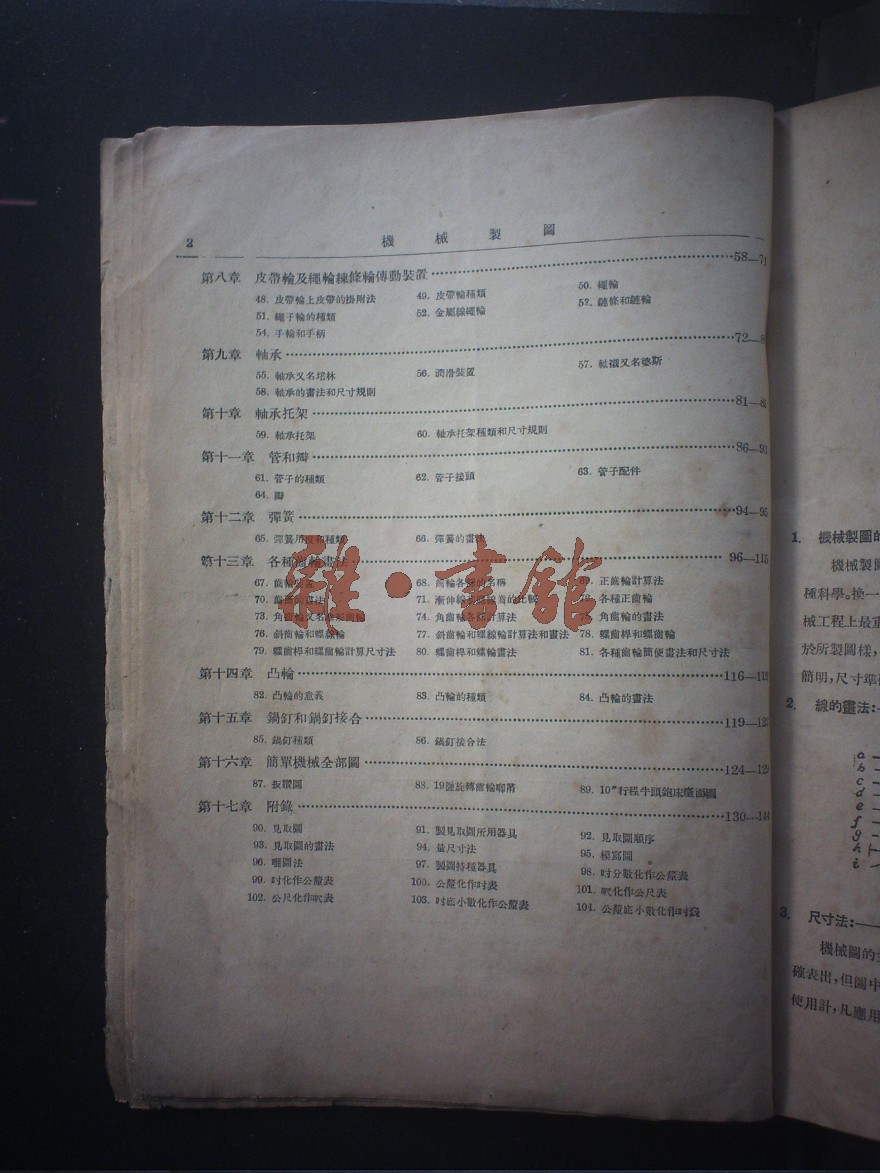 2 機械製圖
第八章 皮帶輪及繩輪練條輪傳動裝置 58—71
48. 皮帶輪上皮帶的掛附法 49. 皮帶輪種類 50. 繩輪
51. 繩子輪的種類 52. 金屬線繩輪 52. 鏈條和鏈輪
54. 手輪和手柄
第九章 軸承 72—8
55. 軸承又名培林 56. 潤滑裝置 57. 軸襯又名婆斯
58. 軸承的畫法和尺寸規則
第十章 軸承托架 81—8
59. 軸承托架 60. 軸承托架種類和尺寸規則
第十一章 管和瓣 86—93
61. 管子的種類 62. 管子接頭 63. 管子配件
64. 瓣
第十二章 彈簧 94—95
65. 彈簧用度和種類 66. 彈簧的畫法
第十三章 各種齒輪畫法 96—115
67. 齒輪 68. 齒輪各部的名稱 69. 正齒輪計算法
70. 畫法 71. 漸伸線 的比較 72. 各種正齒輪
73. 角齒輪又名 齒輪 74. 角齒輪各部計算法 75. 角齒輪的畫法
76. 斜齒輪和螺線輪 77. 斜齒輪和螺線輪計算法和畫法 78. 螺齒桿和螺齒輪
79. 螺齒桿和螺齒輪計算尺寸法 80. 螺齒桿和螺輪畫法 81. 各種齒輪簡便畫法和尺寸法
第十四章 凸輪 116—11
82. 凸輪的意義 83. 凸輪的種類 84. 凸輪的畫法
第十五章 鍋釘和鍋釘接合 119—12
85. 鍋釘種類 86. 鍋釘接合法
第十六章 簡單機械全部圖 124—12
87. 扳鑽圖 88. 19 旋轉齒輪唧筒 89. 10″行程牛頭鉋床 圖
第十七章 附錄 130—144
90. 見取圖 91. 製見取圖所用器具 92. 見取圖順序
93. 見取圖的畫法 94. 量尺寸法 95. 模寫圖
96. 曬圖法 97. 製圖特種器具 98. 吋分數化作公釐表
99. 吋化作公釐表 100. 公釐化作吋表 101. 呎化作公尺表
102. 公尺化作呎表 103. 吋底小數化作公釐表 104. 公釐底小數化作吋表
雜·書館
1. 機械製圖的
機械製圖
種科學。換一
械工程上最重
於所製圖樣,
簡明,尺寸準
2. 線的畫法:—
a
b
c
d
e
f
g
h
i
3. 尺寸法:—
機械圖的
確表出,但圖中
使用計,凡應用